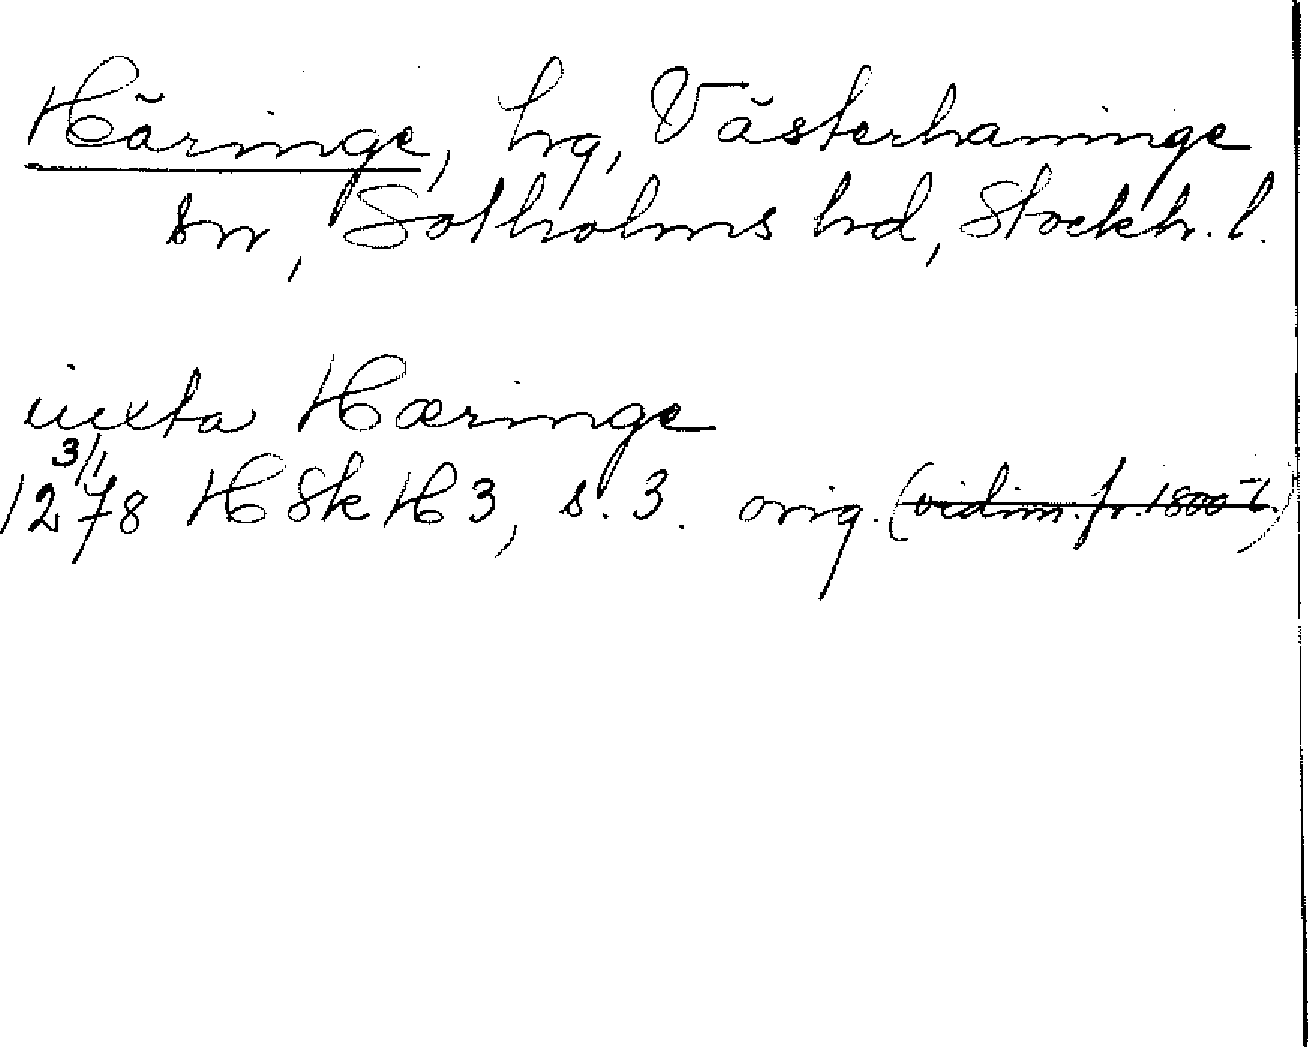 Häringe, hg, Västerhaninge
sn, Sotholms hd, Stockh. l.
iuxta Hæringe
3/1
1278 HSk H3, s. 3. orig. (vidim. fr. 1800-t.)